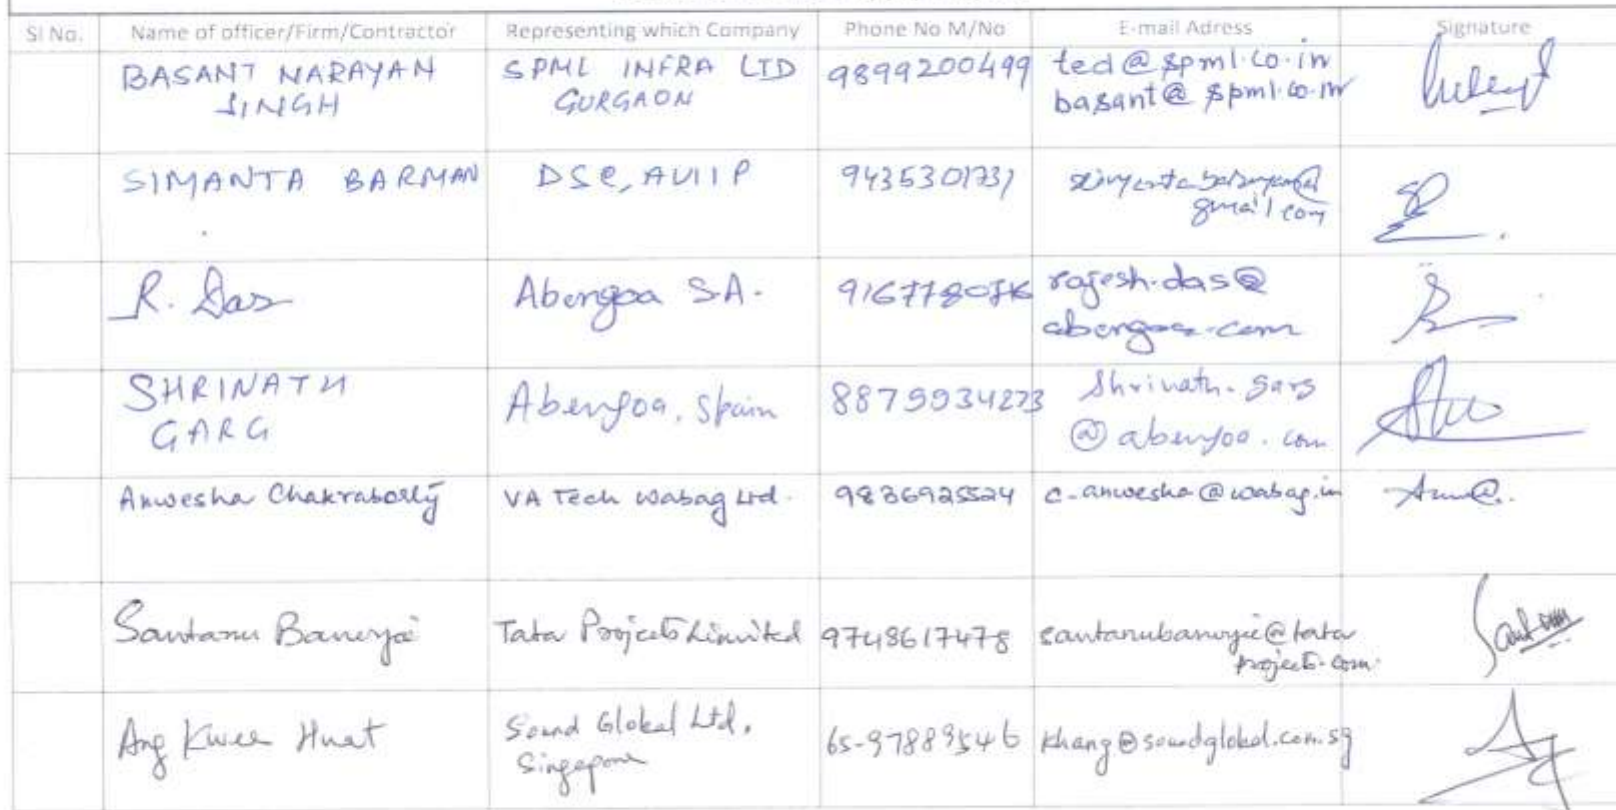 Sl No. Name of officer/Firm/Contractor Representing which Company Phone No M/No E-mail Adress Signature
BASANT NARAYAN SPML INFRA LTD 9899200499 ted@spml.co.in
SINGH GURGAON basant@spml.co.in
SIMANTA BARMAN DSC, AUIIP 9435301731
gmail.com
R. Das Abengoa S.A. rajesh.das@
abengoa.com
SHRINATH Abengoa, Spain 8879934273 Shrinath.garg
GARG @abengoa.com
Anwesha Chakraborty VA Tech Wabag Ltd. 9836925524 c-anwesha@wabag.in
Santanu Banerjee Tata Projects Limited 9748617478 santanubanerjee@tata
projects.com
Ang Kwee Huat Sound Global Ltd, 65-97889546 khang@soundglobal.com.sg
Singapore